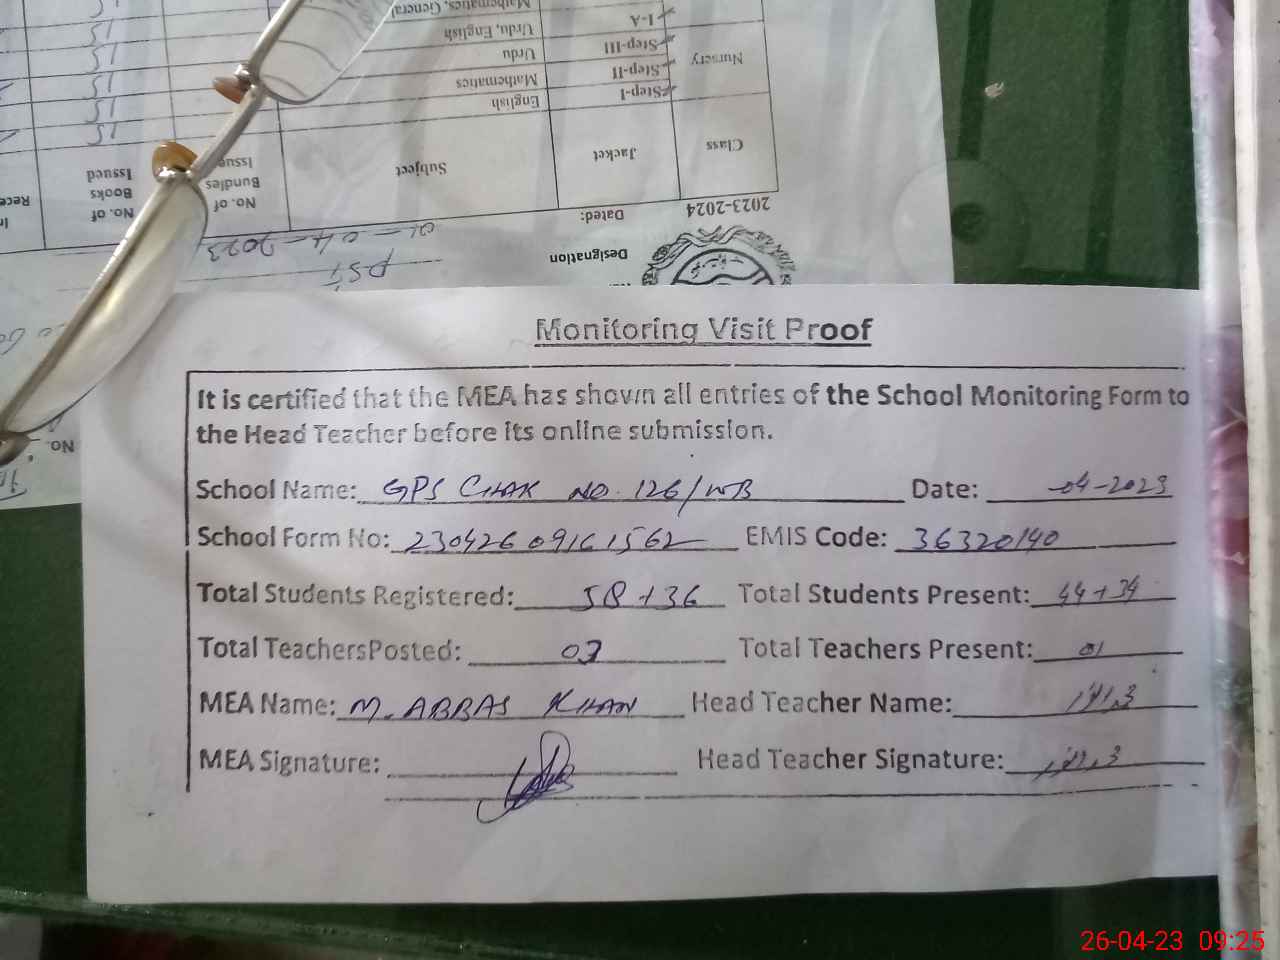 Mathematics, General
I-A
Urdu, English
15
Step-III
Urdu
15
Nursery
Step-II
Mathematics
15
Step-I
English
15
Class
Jacket
Subject
No. of Bundles Issue
No. of Books Issued
2023-2024
Dated:
01-04-2023
Designation
PST
No.
Monitoring Visit Proof
It is certified that the MEA has shown all entries of the School Monitoring Form to
the Head Teacher before its online submission.
School Name: GPS CHAK NO. 126/WB Date: -04-2023
School Form No: 23042609161562 EMIS Code: 36320140
Total Students Registered: 58+36 Total Students Present: 44+34
Total TeachersPosted: 03 Total Teachers Present: 01
MEA Name: M. ABBAS KHAN Head Teacher Name:
MEA Signature: Head Teacher Signature:
26-04-23 09:25